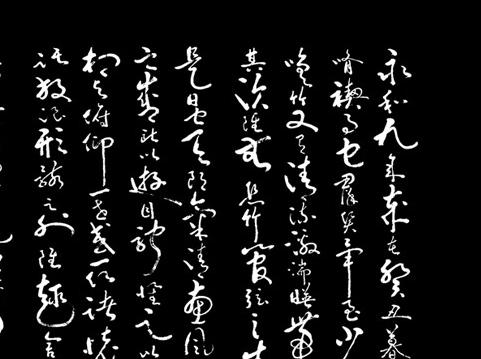 永和九年歲在癸丑暮
脩禊事也群賢畢至少
脩竹又有清流激湍暎帶
其次雖無絲竹管弦之盛
是日也天朗氣清惠風
之盛所以遊目騁懷足以
相與俯仰一世或取諸懷
託放浪形骸之外雖趣舍